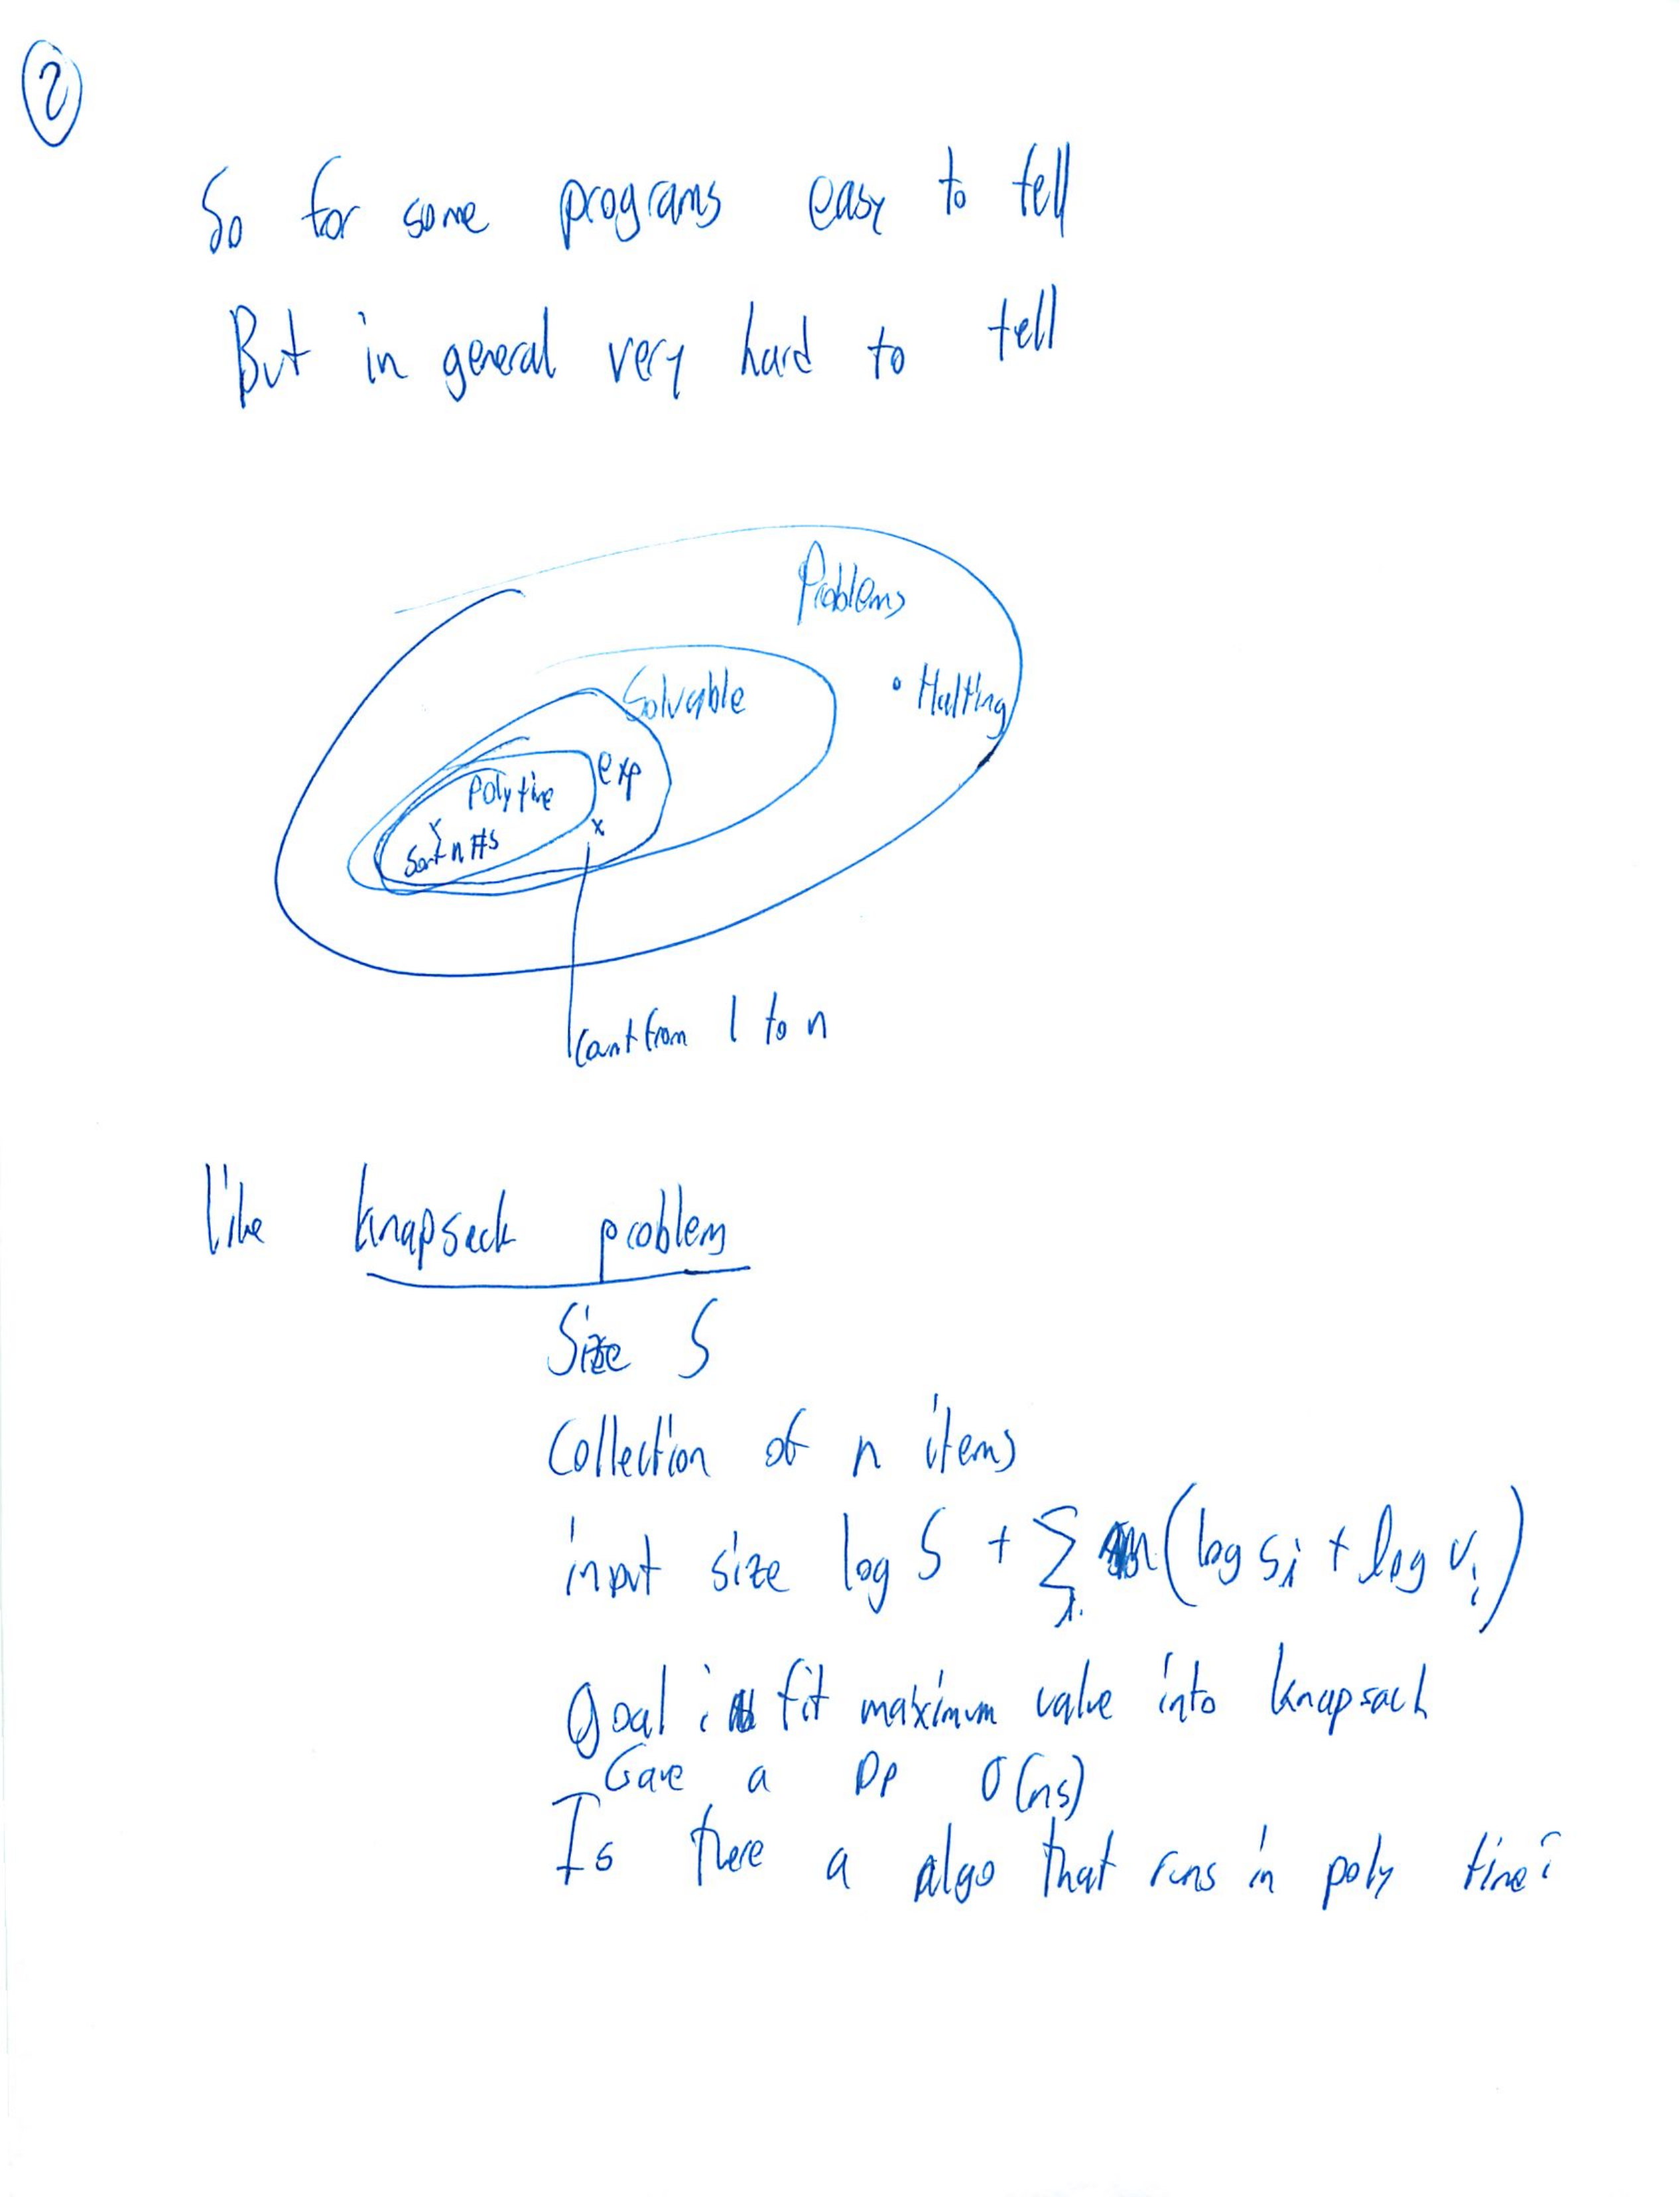 2
So for some programs easy to tell
But in general very hard to tell
Problems
Solvable
• Halting
exp
Poly time
x
x
Sort n #s
Count from 1 to n
like knapsack problem
Size S
Collection of n items
input size log S + ∑i (log si + log vi)
Goal: fit maximum value into knapsack
Gave a DP O(ns)
Is there a algo that runs in poly time?